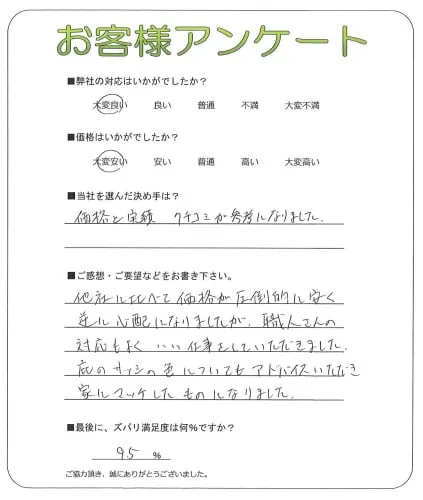 お客様アンケート
■弊社の対応はいかがでしたか？
大変良い 良い 普通 不満 大変不満
■価格はいかがでしたか？
大変安い 安い 普通 高い 大変高い
■当社を選んだ決め手は？
価格と実績 クチコミが参考になりました。
■ご感想・ご要望などをお書き下さい。
他社に比べて価格が圧倒的に安く
逆に心配になりましたが、職人さんの
対応もよく いい仕事をしていただきました。
庇のサッシの色についてもアドバイスいただき
家にマッチしたものになりました。
■最後に、ズバリ満足度は何％ですか？
95 ％
ご協力頂き、誠にありがとうございました。